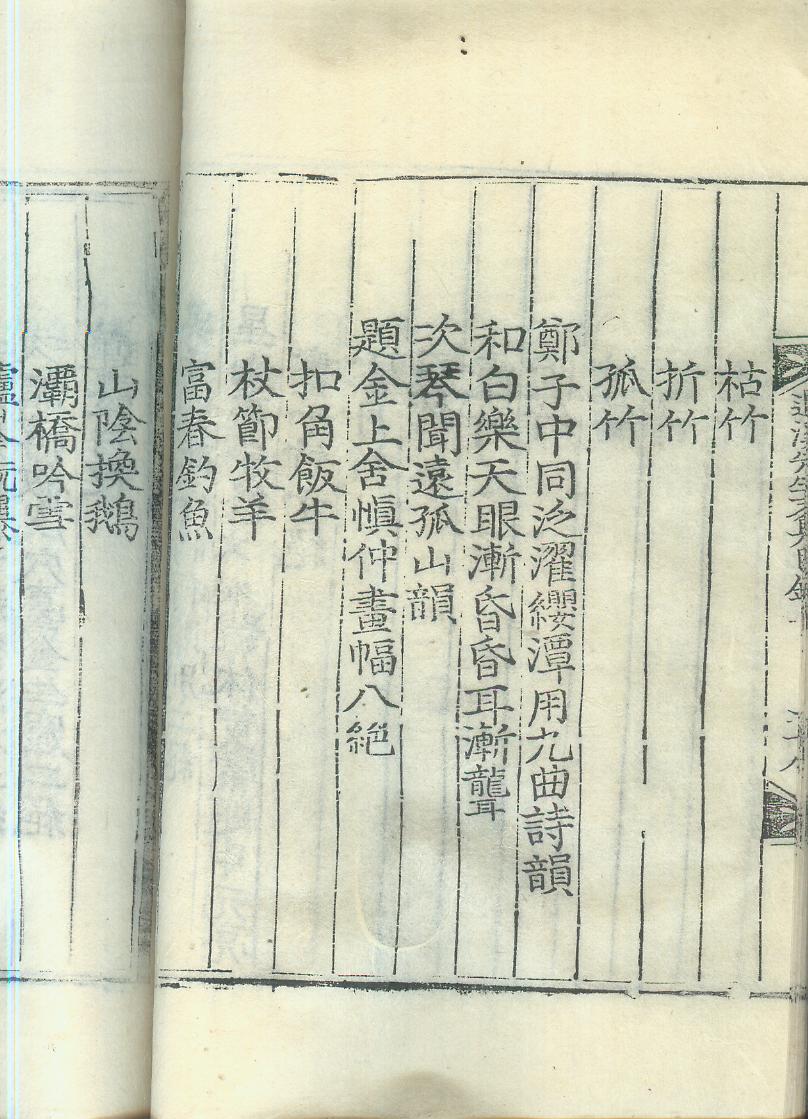 枯竹
折竹
孤竹
鄭子中同泛濯纓潭用九曲詩韻
和白樂天眼漸昏昏耳漸聾
次琴聞遠孤山韻
題金上舍愼仲畫幅八絶
扣角飯牛
杖節牧羊
富春釣魚
山陰換鵝
灞橋吟雪